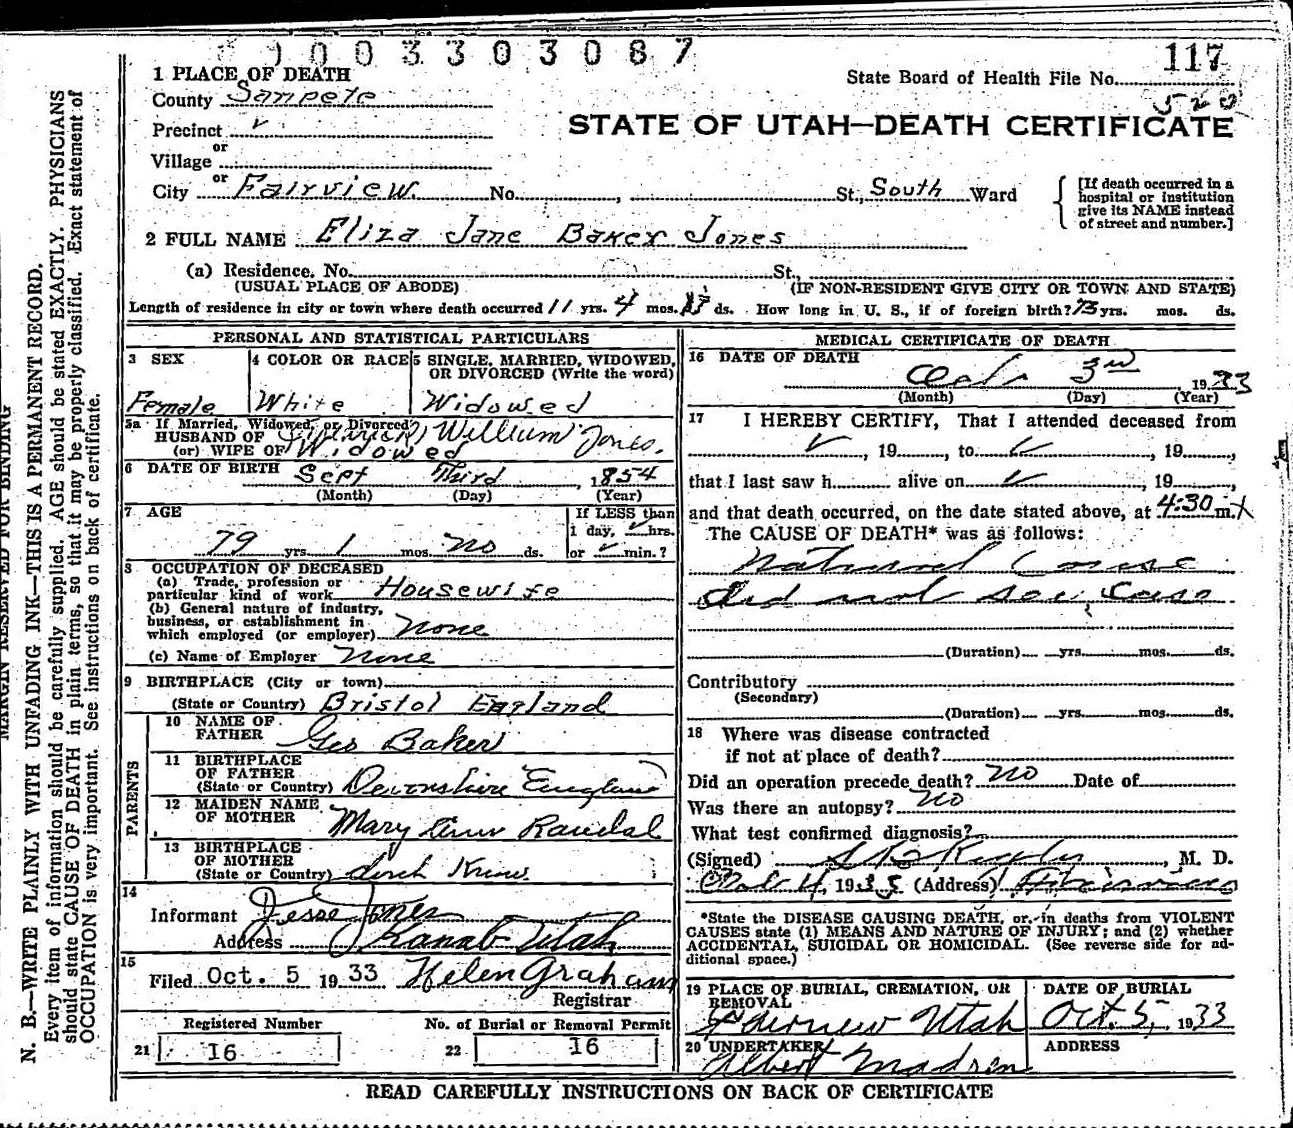 1003303087
117
1 PLACE OF DEATH
State Board of Health File No.
County Sanpete
520
Precinct
STATE OF UTAH—DEATH CERTIFICATE
or
Village
or
City Fairview. No. , St., South Ward
[If death occurred in a hospital or institution give its NAME instead of street and number.]
2 FULL NAME Eliza Jane Baker Jones
(a) Residence. No. St.,
(USUAL PLACE OF ABODE) (IF NON-RESIDENT GIVE CITY OR TOWN AND STATE)
Length of residence in city or town where death occurred 11 yrs. 4 mos. ds. How long in U. S., if of foreign birth? 73 yrs. mos. ds.
PERSONAL AND STATISTICAL PARTICULARS
3 SEX
4 COLOR OR RACE
5 SINGLE, MARRIED, WIDOWED, OR DIVORCED (Write the word)
Female White Widowed
5a If Married, Widowed, or Divorced
HUSBAND OF William Jones.
(or) WIFE OF Widowed
6 DATE OF BIRTH Sept Third, 1854
(Month) (Day) (Year)
7 AGE
If LESS than
1 day, hrs.
79 yrs. 1 mos. no ds. or min.?
8 OCCUPATION OF DECEASED
(a) Trade, profession or
particular kind of work Housewife
(b) General nature of industry,
business, or establishment in
which employed (or employer) none
(c) Name of Employer none
9 BIRTHPLACE (City or town)
(State or Country) Bristol England
PARENTS
10 NAME OF
FATHER Geo Baker
11 BIRTHPLACE
OF FATHER
(State or Country) Devonshire England
12 MAIDEN NAME
OF MOTHER Mary Ann Randal
13 BIRTHPLACE
OF MOTHER
(State or Country)
14
Informant Jesse Jones
Address Kanab Utah
15
Filed Oct. 5 1933 Helen Graham
Registrar
Registered Number No. of Burial or Removal Permit
21 16 22 16
MEDICAL CERTIFICATE OF DEATH
16 DATE OF DEATH
Oct 3rd 1933
(Month) (Day) (Year)
17 I HEREBY CERTIFY, That I attended deceased from
, 19 , to , 19 ,
that I last saw h alive on , 19 ,
and that death occurred, on the date stated above, at 4:30 m.
The CAUSE OF DEATH* was as follows:
Natural Cause
did not see Case
(Duration) yrs. mos. ds.
Contributory
(Secondary)
(Duration) yrs. mos. ds.
18 Where was disease contracted
if not at place of death?
Did an operation precede death? no Date of
Was there an autopsy? no
What test confirmed diagnosis?
(Signed) , M. D.
Oct 4, 193 (Address)
*State the DISEASE CAUSING DEATH, or, in deaths from VIOLENT
CAUSES state (1) MEANS AND NATURE OF INJURY; and (2) whether
ACCIDENTAL, SUICIDAL OR HOMICIDAL. (See reverse side for ad-
ditional space.)
19 PLACE OF BURIAL, CREMATION, OR REMOVAL
DATE OF BURIAL
Fairview Utah Oct. 5, 1933
20 UNDERTAKER ADDRESS
Albert Madsen
READ CAREFULLY INSTRUCTIONS ON BACK OF CERTIFICATE
MARGIN RESERVED FOR BINDING
N. B.—WRITE PLAINLY WITH UNFADING INK—THIS IS A PERMANENT RECORD.
Every item of information should be carefully supplied. AGE should be stated EXACTLY. PHYSICIANS
should state CAUSE OF DEATH in plain terms, so that it may be properly classified. Exact statement of
OCCUPATION is very important. See instructions on back of certificate.